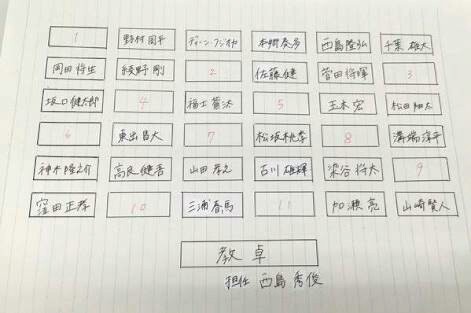 1 野村周平 ディーン・フジオカ 本郷奏多 西島隆弘 千葉雄大
岡田将生 綾野剛 2 佐藤健 菅田将暉 3
坂口健太郎 4 福士蒼汰 5 玉木宏 松田翔太
6 東出昌大 7 松坂桃李 8 溝端淳平
神木隆之介 高良健吾 山田孝之 石川雄輝 染谷将太 9
窪田正孝 10 三浦春馬 11 加瀬亮 山崎賢人
教卓
担任 西島秀俊